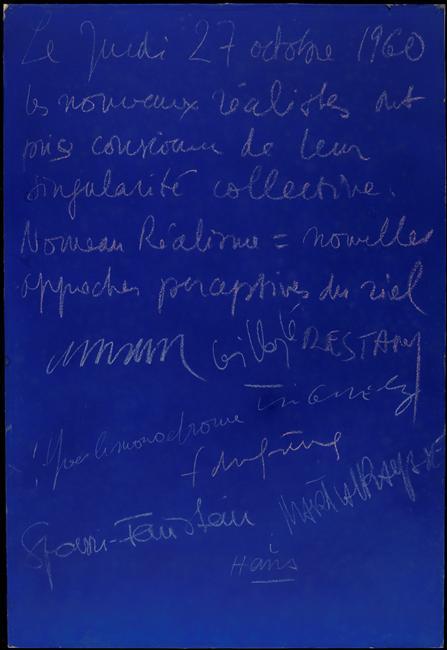 Le Jeudi 27 octobre 1960
les nouveaux réalistes ont
pris conscience de leur
singularité collective.
Nouveau Réalisme = nouvelles
approches perceptives du réel
arman Villeglé RESTANY
Yves le monochrome Tinguely
f dufrêne
Spoerri-Feinstein MARTIAL RAYSSE
Hains